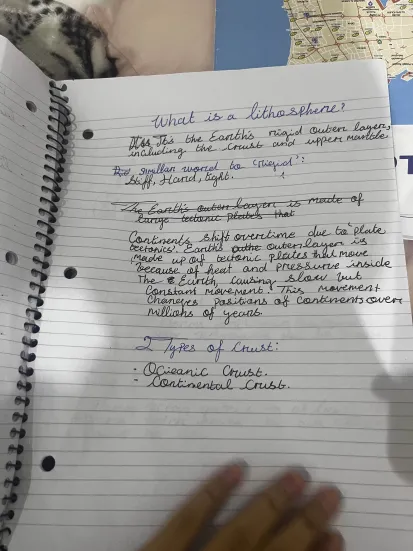 What is a lithosphere?
It's the Earth's rigid outer layer,
including the crust and upper mantle.
smillar world to 'rigid':
Stiff, Hard, tight.
The Earth's outer layer is made of
large tectonic plates that
Continents shift overtime due to 'plate
tectonics'. Earth's outer layer is
made up of tectonic plates that move
because of heat and pressure inside
The Earth, causing slow but
Constant movement. This movement
changes positions of continents over
millions of years.
2 Types of Crust:
- Ocieanic Crust.
- Continental Crust.